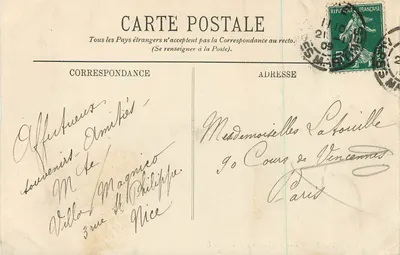 CARTE POSTALE
Tous les Pays étrangers n'acceptent pas la Correspondance au recto.
(Se renseigner à la Poste).
CORRESPONDANCE
Affectueux
souvenirs - Amitiés -
M te/
Villa Magnico
3 rue St Philippe
Nice
ADRESSE
Mesdemoiselles Latouille
90 Cours de Vincennes
Paris
FRANÇAISE
09